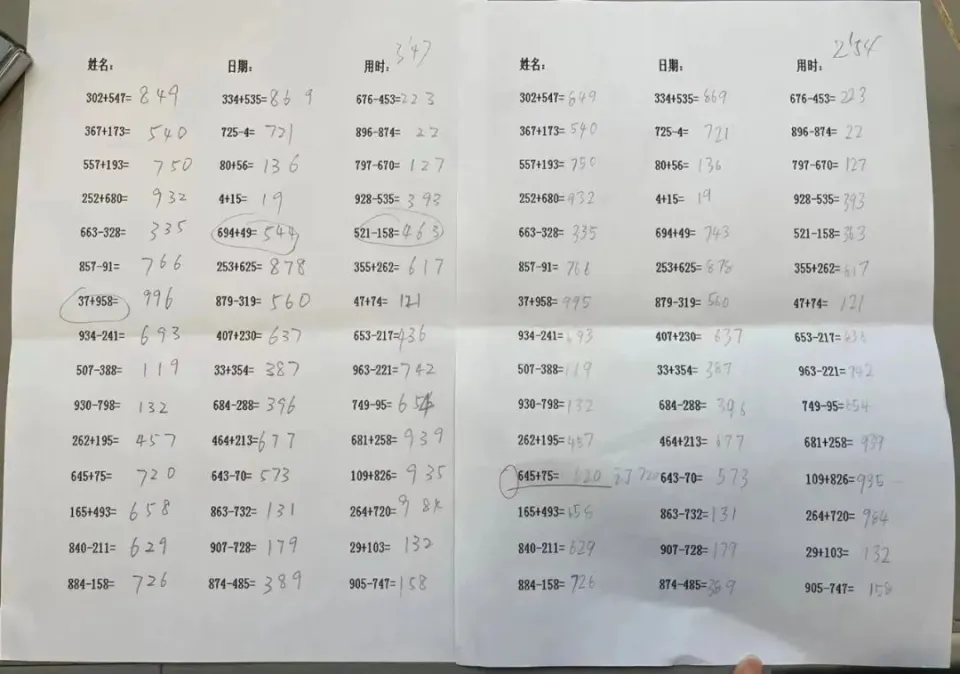 3'47
姓名: 日期: 用时:
302+547= 849 334+535= 869 676-453= 223
367+173= 540 725-4= 721 896-874= 22
557+193= 750 80+56= 136 797-670= 127
252+680= 932 4+15= 19 928-535= 393
663-328= 335 694+49= 544 521-158= 463
857-91= 766 253+625= 878 355+262= 617
37+958= 996 879-319= 560 47+74= 121
934-241= 693 407+230= 637 653-217= 436
507-388= 119 33+354= 387 963-221= 742
930-798= 132 684-288= 396 749-95= 654
262+195= 457 464+213= 677 681+258= 939
645+75= 720 643-70= 573 109+826= 935
165+493= 658 863-732= 131 264+720= 984
840-211= 629 907-728= 179 29+103= 132
884-158= 726 874-485= 389 905-747= 158
2'54
姓名: 日期: 用时:
302+547= 849 334+535= 869 676-453= 223
367+173= 540 725-4= 721 896-874= 22
557+193= 750 80+56= 136 797-670= 127
252+680= 932 4+15= 19 928-535= 393
663-328= 335 694+49= 743 521-158= 363
857-91= 766 253+625= 878 355+262= 617
37+958= 995 879-319= 560 47+74= 121
934-241= 693 407+230= 637 653-217= 436
507-388= 119 33+354= 387 963-221= 742
930-798= 132 684-288= 396 749-95= 654
262+195= 457 464+213= 677 681+258= 939
645+75= 620 订720 643-70= 573 109+826= 935
165+493= 658 863-732= 131 264+720= 984
840-211= 629 907-728= 179 29+103= 132
884-158= 726 874-485= 389 905-747= 158